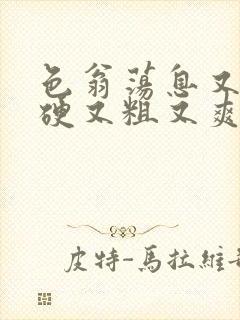 色翁荡息又
硬又粗又爽
皮特-馬拉維